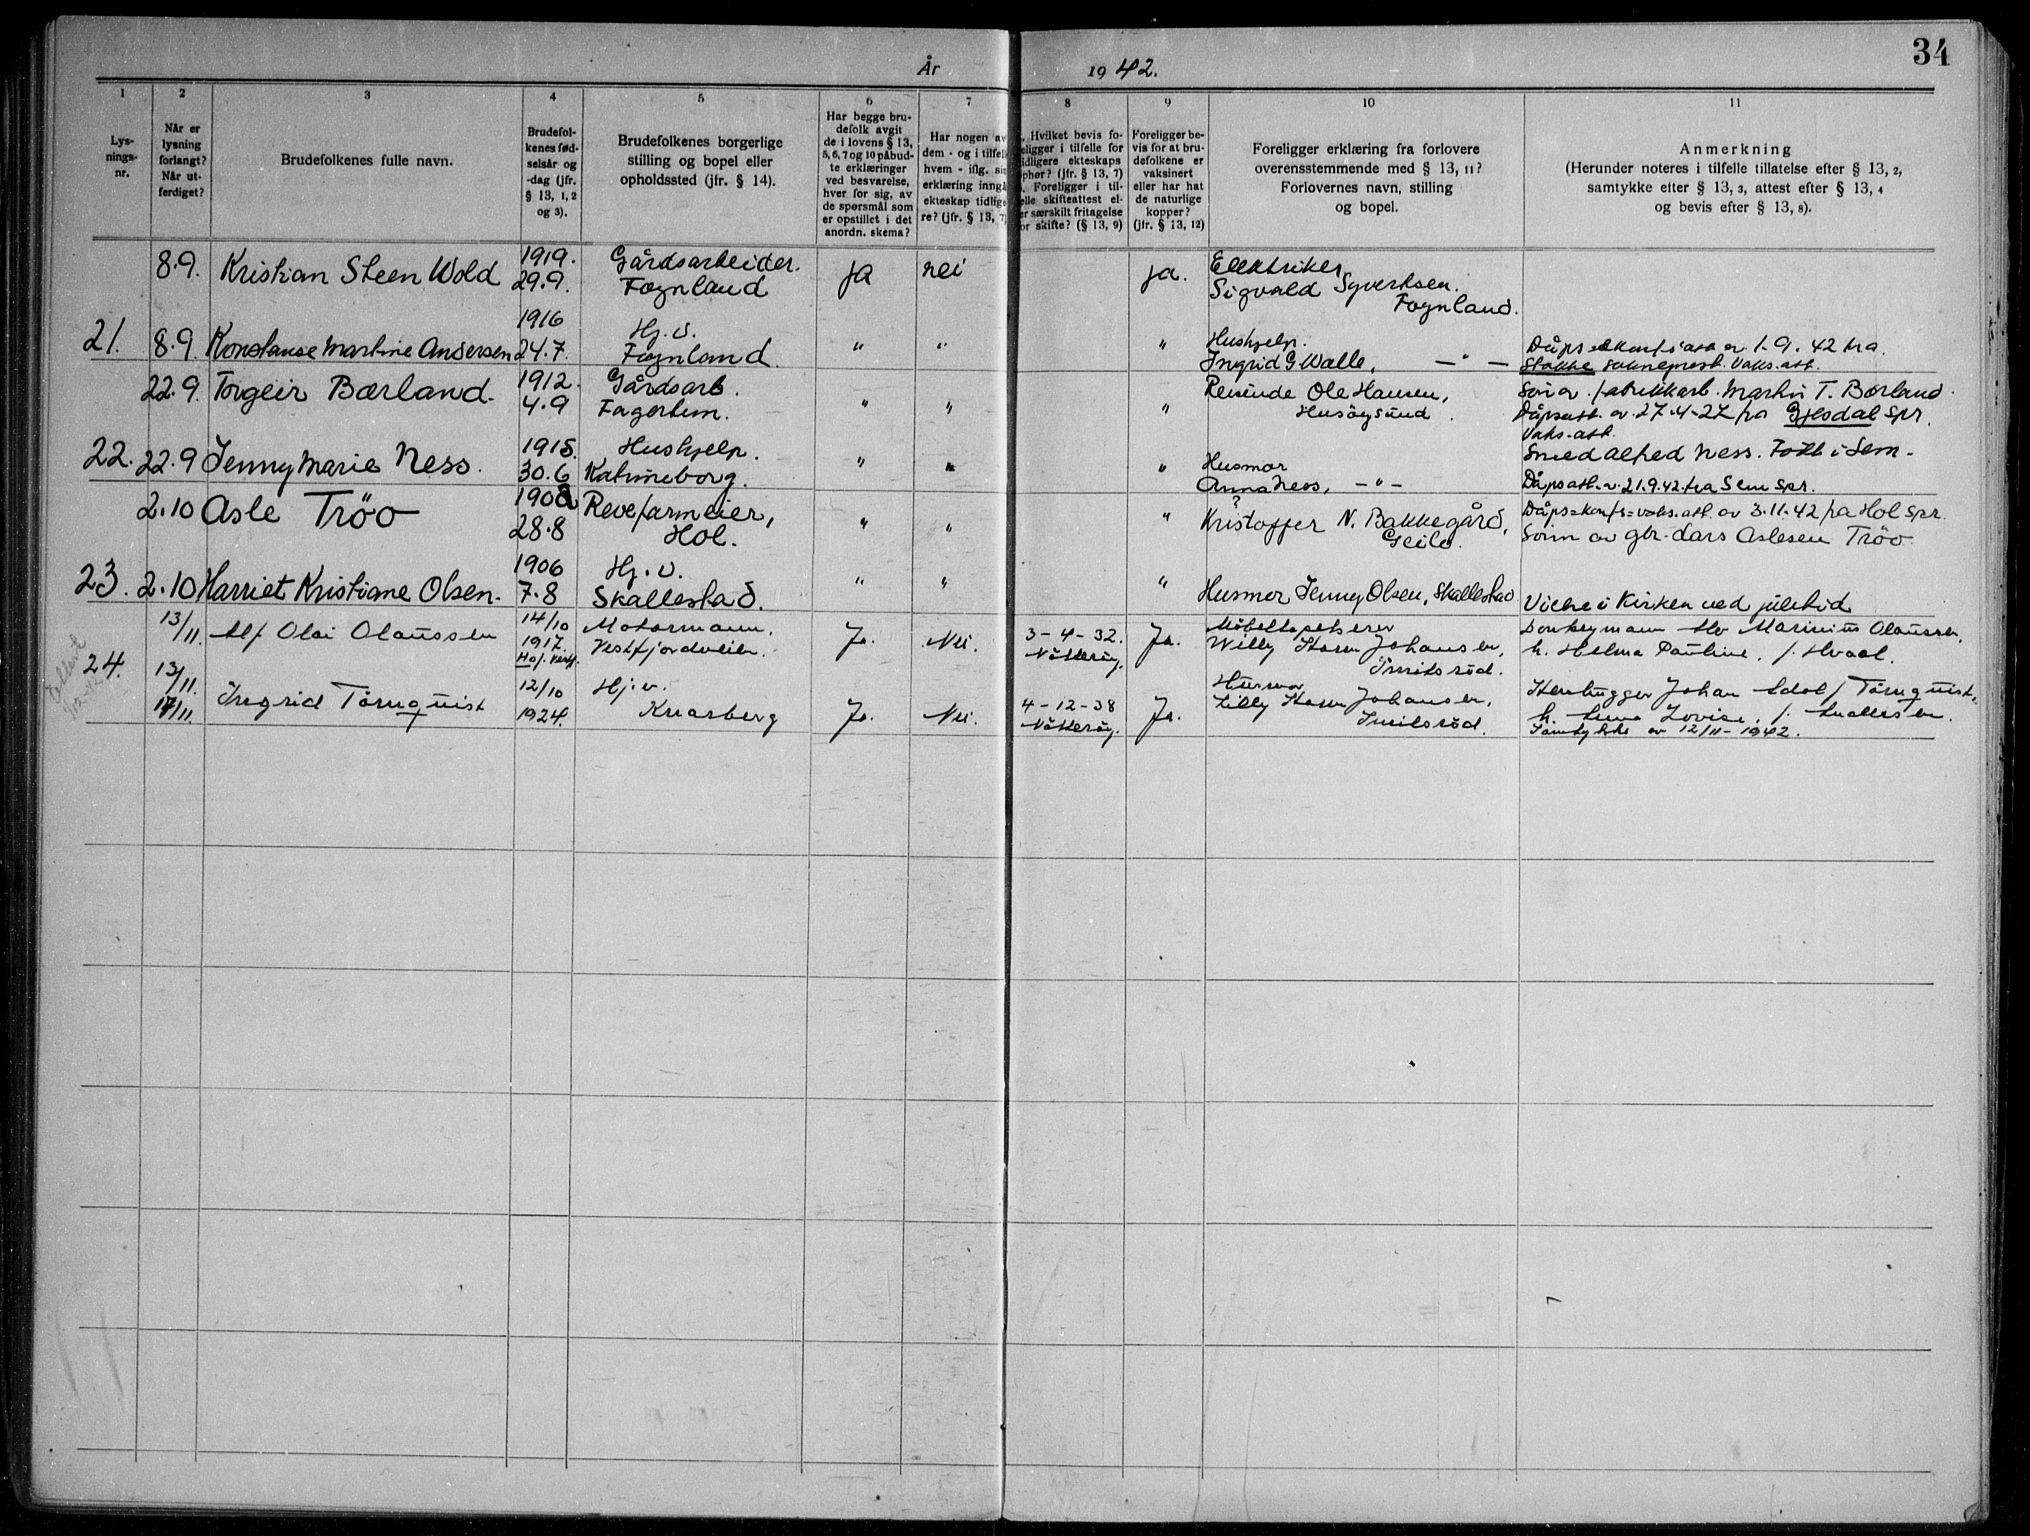 34
År 1942.
1 2 3 4 5 6 7 8 9 10 11
Lys-
nings-
nr.
Når er
lysning
forlangt?
Når ut-
ferdiget?
Brudefolkenes fulle navn.
Brudefol-
kenes fød-
selsår og
-dag (jfr.
§ 13, 1, 2
og 3).
Brudefolkenes borgerlige
stilling og bopel eller
opholdssted (jfr. § 14).
Har begge bru-
defolk avgit
de i lovens § 13,
5, 6, 7 og 10 påbud-
te erklæringer
ved besvarelse,
hver for sig, av
de spørsmål som
er opstillet i det
anordn. skema?
Har nogen av
dem - og i tilfelle
hvem - iflg. sin
erklæring inngå
ekteskap tidlige
re? (jfr. § 13, 7)
Hvilket bevis fo-
eligger i tilfelle for
idligere ekteskaps
phør? (jfr. § 13, 7)
Foreligger i til-
elle skifteattest el-
er særskilt fritagelse
or skifte? (§ 13, 9)
Foreligger be-
vis for at bru-
defolkene er
vaksinert
eller har hat
de naturlige
kopper?
(jfr. § 13, 12)
Foreligger erklæring fra forlovere
overensstemmende med § 13, 11?
Forlovernes navn, stilling
og bopel.
Anmerkning
(Herunder noteres i tilfelle tillatelse efter § 13, 2,
samtykke efter § 13, 3, attest efter § 13, 4
og bevis efter § 13, 8).
8.9. Kristian Steen Wold 1919. 29.9. Gårdsarbeider. Føynland ja nei ja. Elektriker
Sigvald Syvertsen.
Føynland.
21. 8.9. Konstanse Martine Andersen 1916 24.7. Hj.v. Føynland. " " " Hushjelp.
Ingrid G Walle, — " —
Dåps av 1.9.42 fra
Stokke sokneprest. Vaks.att.
22.9. Torgeir Bærland. 1912. 4.9 Gårdsarb. Fagerheim. " " " Reisende Ole Hansen,
Husøysund.
Søn av fabrikkarb. Martin T. Bærland.
Dåpsatt. av 27.4-27 fra Gjesdal spr.
Vaks.att.
22. 22.9 Jenny Marie Ness. 1915. 30.6 Hushjelp. Katrineborg. " " " Husmor
Anna Ness, — " —
Smed Alfred Ness. Født i Sem.
Dåpsatt. av 21.9.42. fra Sem spr.
2.10 Asle Tröo 1908 28.8 Revefarmeier, Hol. " " " Kristoffer N. Bakkegård,
Geilo.
Dåps=konf=vaks.att. av 3.11.42 fra Hol spr.
Sønn av gbr. Lars Aslesen Tröo
23. 2.10 Harriet Kristiane Olsen. 1906 7.8 Hj.v. Skallestad. " " " Husmor Jenny Olsen, Skallestad
Vies i Kirken ved juletid
13/11. Alf Olai Olaussen 14/10 1917. Motormann. Vestfjordveien. Ja. Nei. 3-4-32. Nötteröy. Ja. Möbeltapetserer
Willy Storm Johansen,
Smidsröd.
Donkeymann Alv Marinius Olaussen,
h. Helma Pauline, f. Hvaal.
24. 13/11. 17/11. Ingrid Törnquist 12/10 1924. Hj.v. Knarberg Ja. Nei. 4-12-38 Nötteröy. Ja. Husmor
Lilly Storm Johansen,
Smidsröd.
Stenhugger Johan Adolf Törnquist,
h. Anna Lovise, f. Andersen.
Samtykke av 12/11-1942.